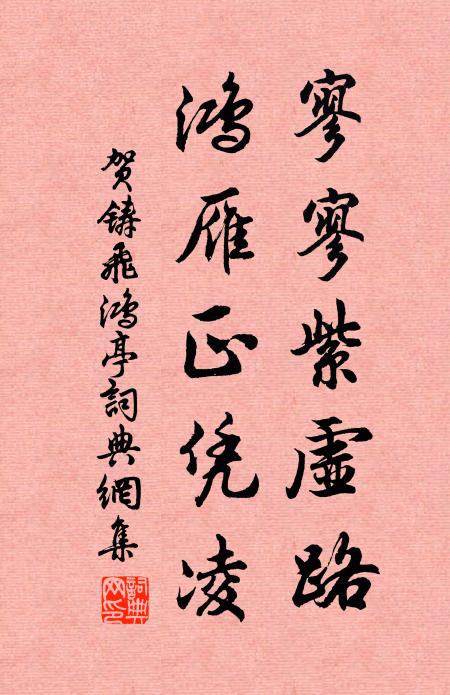 寥寥紫虛路
鴻雁正凭凌
賀鑄飛鴻亭詞典網集
詞典網印